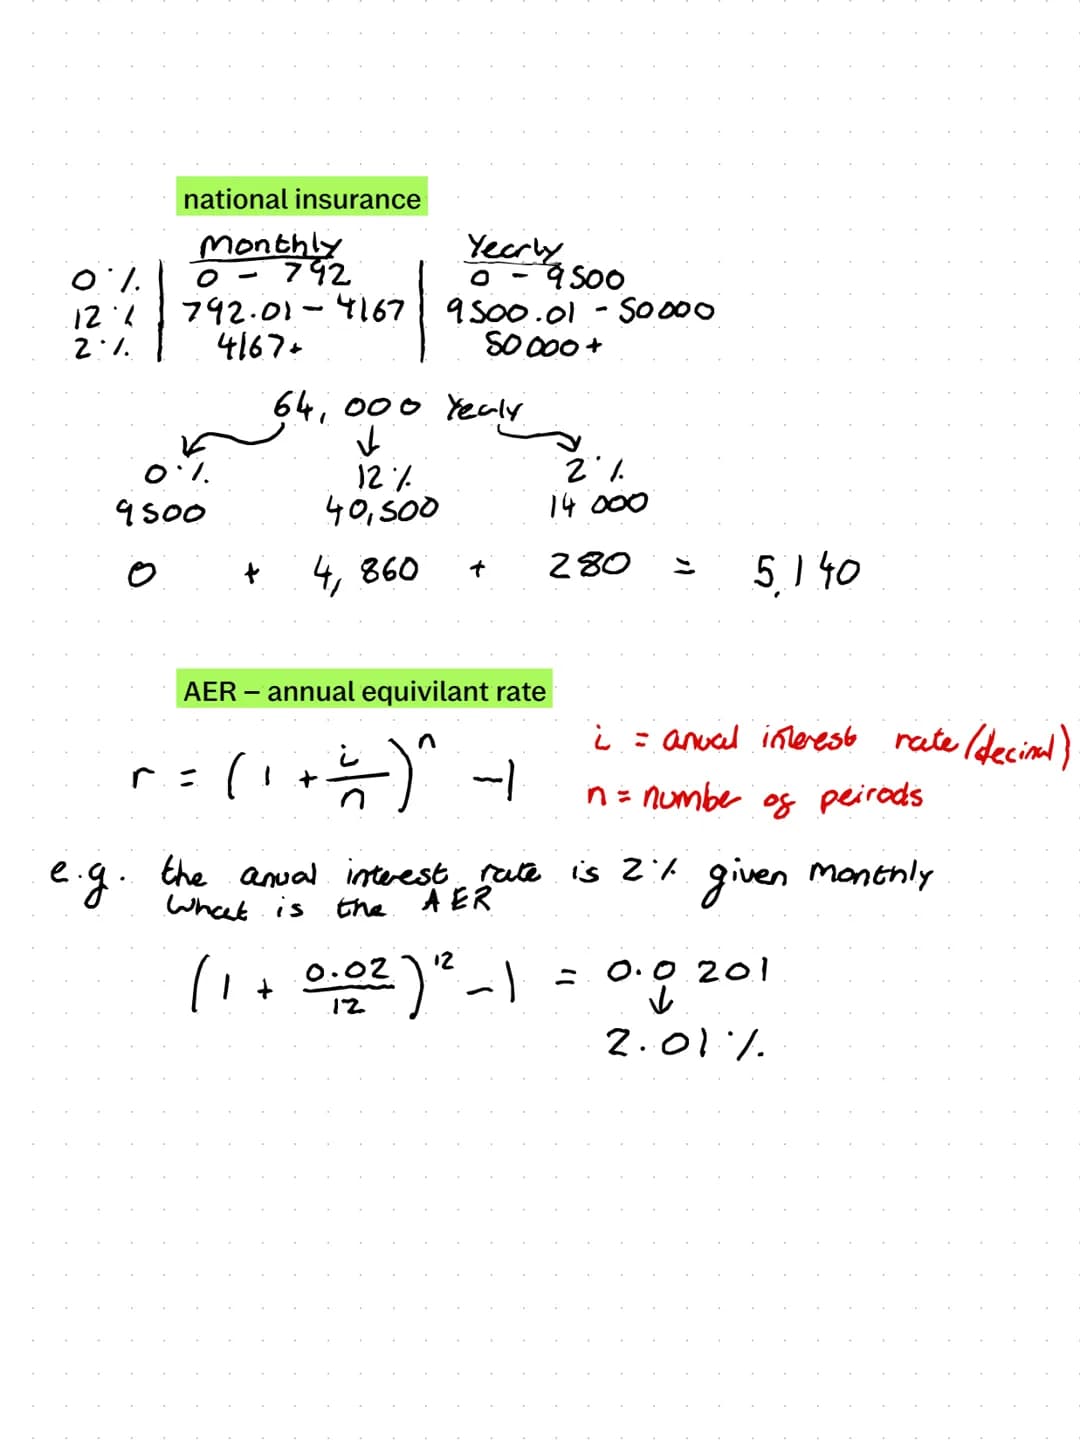 national insurance
Monthly Yearly
0% 0 - 792 0 - 9500
12% 792.01 - 4167 9500.01 - 50000
2% 4167+ 50000+
64,000 Yealy
0% 12% 2%
9500 40,500 14 000
0 + 4,860 + 280 = 5,140
AER – annual equivilant rate
r = (1 + i/n)^n - 1 i = anual interest rate (decimal)
n = number of peirods
e.g. the anual interest rate is 2% given monthly
What is the AER
(1 + 0.02/12)^12 - 1 = 0.0201
↓
2.01%